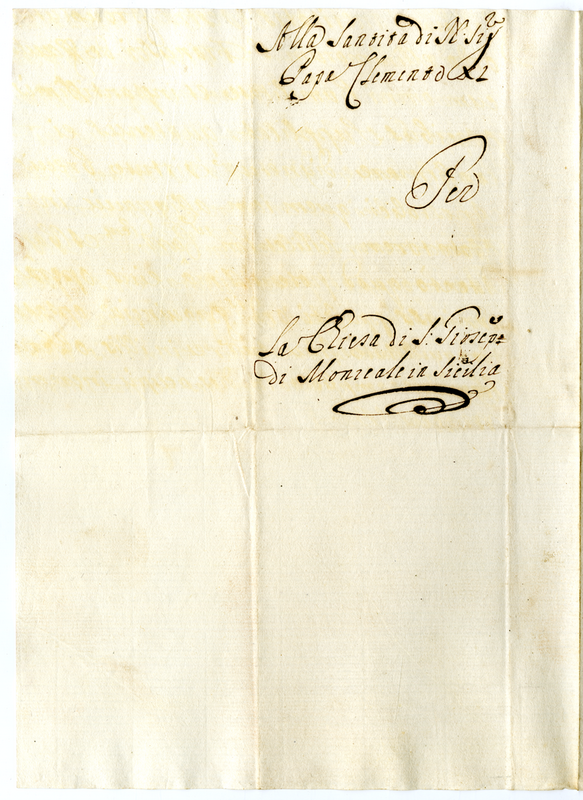 Alla Santità di N. Sigre
Papa Clemente XI
Per
La Chiesa di S. Gioseppe
di Monreale in Sicilia